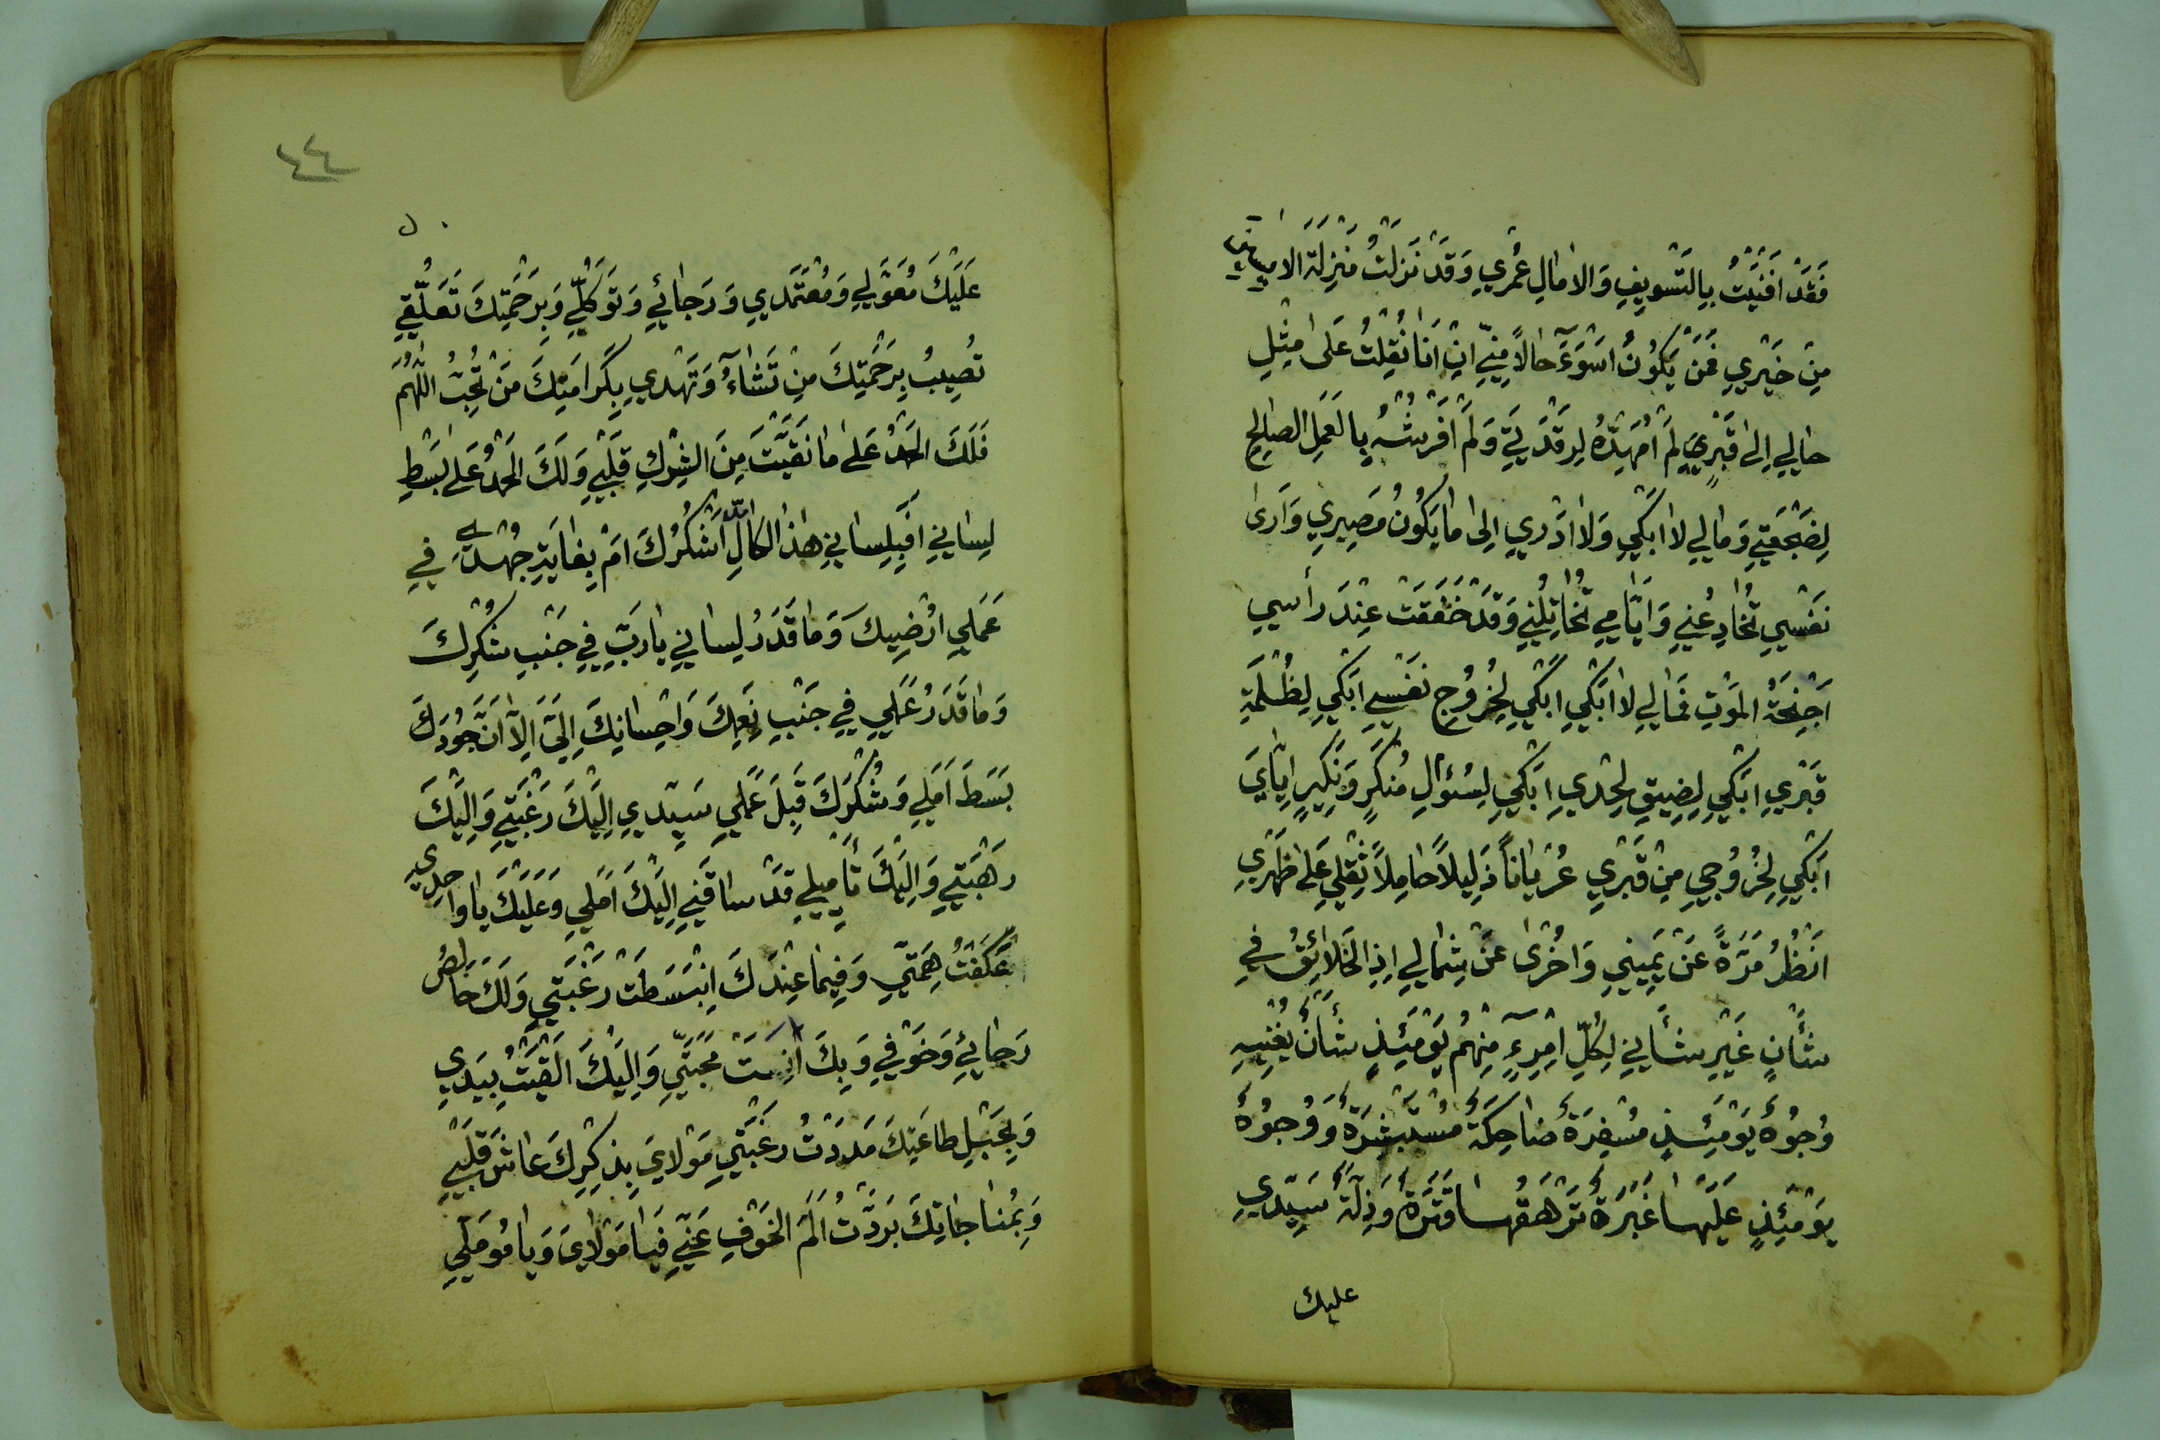 فَقَدْ اَفْنَيْتُ بِالتَّسْوِيفِ وَالْاٰمٰالِ عُمْرِي وَقَدْ نَزَلْتُ مَنْزِلَةَ الْاٰيِسِينَ
مِنْ خَيْرِي فَمَنْ يَكُونُ اَسْوَءَ حٰالًا مِنِّي اِنْ اَنَا نُقِلْتُ عَلىٰ مِثْلِ
حٰالِي اِلىٰ قَبْرِي لَمْ اُمَهِّدْهُ لِرَقْدَتِي وَلَمْ اَفْرُشْهُ بِالْعَمَلِ الصّٰالِحِ
لِضَجْعَتِي وَمٰالِي لٰا اَبْكِي وَلٰا اَدْرِي اِلىٰ مٰا يَكُونُ مَصِيرِي وَاَرىٰ
نَفْسِي تُخٰادِعُنِي وَاَيّٰامِي تُخٰاتِلُنِي وَقَدْ خَفَقَتْ عِنْدَ رَأسِي
اَجْنِحَةُ الْمَوْتِ فَمٰالِي لٰا اَبْكِي اَبْكِي لِخُرُوجِ نَفْسِي اَبْكِي لِظُلْمَةِ
قَبْرِي اَبْكِي لِضِيقِ لَحْدِي اَبْكِي لِسُئوٰالِ مُنْكَرٍ وَنَكِيرٍ اِيّٰايَ
اَبْكِي لِخُرُوجِي مِنْ قَبْرِي عُرْيٰاناً ذَلِيلًا حٰامِلًا ثِقْلِي عَلىٰ ظَهْرِي
اَنْظُرُ مَرَّةً عَنْ يَمِينِي وَاُخْرىٰ عَنْ شِمٰالِي اِذِ الْخَلٰائِقُ فِي
شَأْنٍ غَيْرِ شَأْنِي لِكُلِّ امْرِءٍ مِنْهُمْ يَوْمَئِذٍ شَأْنٌ يُغْنِيهِ
وُجُوهٌ يَوْمَئِذٍ مُسْفِرَةٌ ضٰاحِكَةٌ مُسْتَبْشِرَةٌ وَوُجُوهٌ
يَوْمَئِذٍ عَلَيْهٰا غَبَرَةٌ تَرْهَقُهٰا قَتَرَةٌ وَذِلَّةٌ سَيِّدِي
عليك
٤٤
عَلَيْكَ مُعَوَّلِي وَمُعْتَمَدِي وَرَجٰائِي وَتَوَكُّلِي وَبِرَحْمَتِكَ تَعَلُّقِي
تُصِيبُ بِرَحْمَتِكَ مَنْ تَشٰاءُ وَتَهْدِي بِكَرٰامَتِكَ مَنْ تُحِبُّ اَللّٰهُمَّ
فَلَكَ الْحَمْدُ عَلىٰ مٰا نَقَّيْتَ مِنَ الشِّرْكِ قَلْبِي وَلَكَ الْحَمْدُ عَلىٰ بَسْطِ
لِسٰانِي اَفَبِلِسٰانِي هٰذَا الْكٰالِّ اَشْكُرُكَ اَمْ بِغٰايَةِ جُهْدِي فِي
عَمَلِي اُرْضِيكَ وَمٰا قَدَرُ لِسٰانِي يٰا رَبِّ فِي جَنْبِ شُكْرِكَ
وَمٰا قَدَرُ عَمَلِي فِي جَنْبِ نِعَمِكَ وَاِحْسٰانِكَ اِلَيَّ اِلّٰا اَنَّ جُودَكَ
بَسَطَ اَمَلِي وَشُكْرَكَ قَبِلَ عَمَلِي سَيِّدِي اِلَيْكَ رَغْبَتِي وَاِلَيْكَ
رَهْبَتِي وَاِلَيْكَ تَأْمِيلِي قَدْ سٰاقَنِي اِلَيْكَ اَمَلِي وَعَلَيْكَ يٰا وٰاحِدِي
عَكَفَتْ هِمَّتِي وَفِيمٰا عِنْدَكَ انْبَسَطَتْ رَغْبَتِي وَلَكَ خٰالِصُ
رَجٰائِي وَخَوْفِي وَبِكَ اَنِسَتْ مَحَبَّتِي وَاِلَيْكَ اَلْقَيْتُ بِيَدِي
وَبِحَبْلِ طٰاعَتِكَ مَدَدْتُ رَغْبَتِي مَوْلٰايَ بِذِكْرِكَ عٰاشَ قَلْبِي
وَبِمُنٰاجٰاتِكَ بَرَّدْتُ اَلَمَ الْخَوْفِ عَنِّي فَيٰا مَوْلٰايَ وَيٰا مُؤَمَّلِي